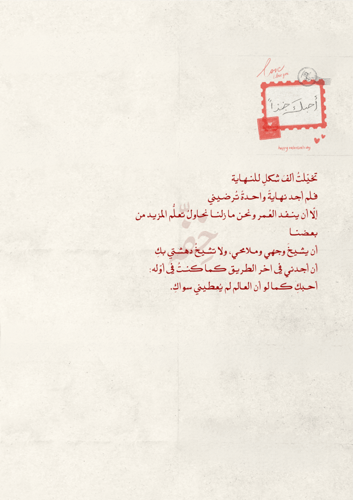 تخيّلتُ ألفَ شكلٍ للنهاية
فلم أجد نهايةً واحدةً تُرضيني
إلّا أن ينفد العُمر ونحن مازلنا نحاول تعلُّم المزيد من
بعضنا
أن يشيخ وجهي وملامحي، ولا تشيخ دهشتي بكِ
أن أجدني في اخر الطريق كما كنتُ في أوّله:
أحبكِ كما لو أن العالم لم يُعطيني سواكِ.